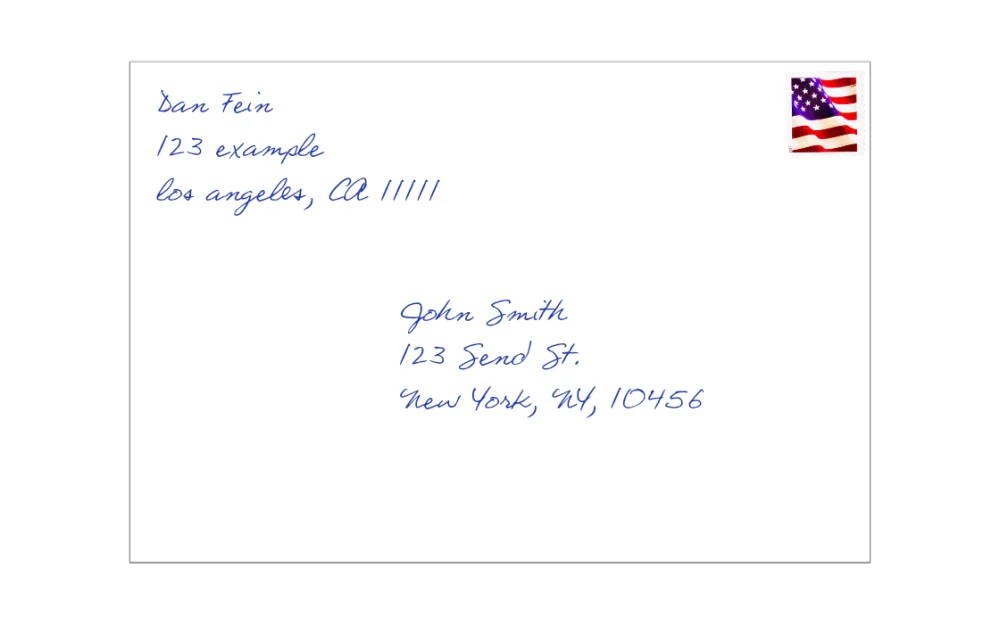 Dan Fein
123 example
los angeles, CA 11111
John Smith
123 Send St.
New York, NY, 10456